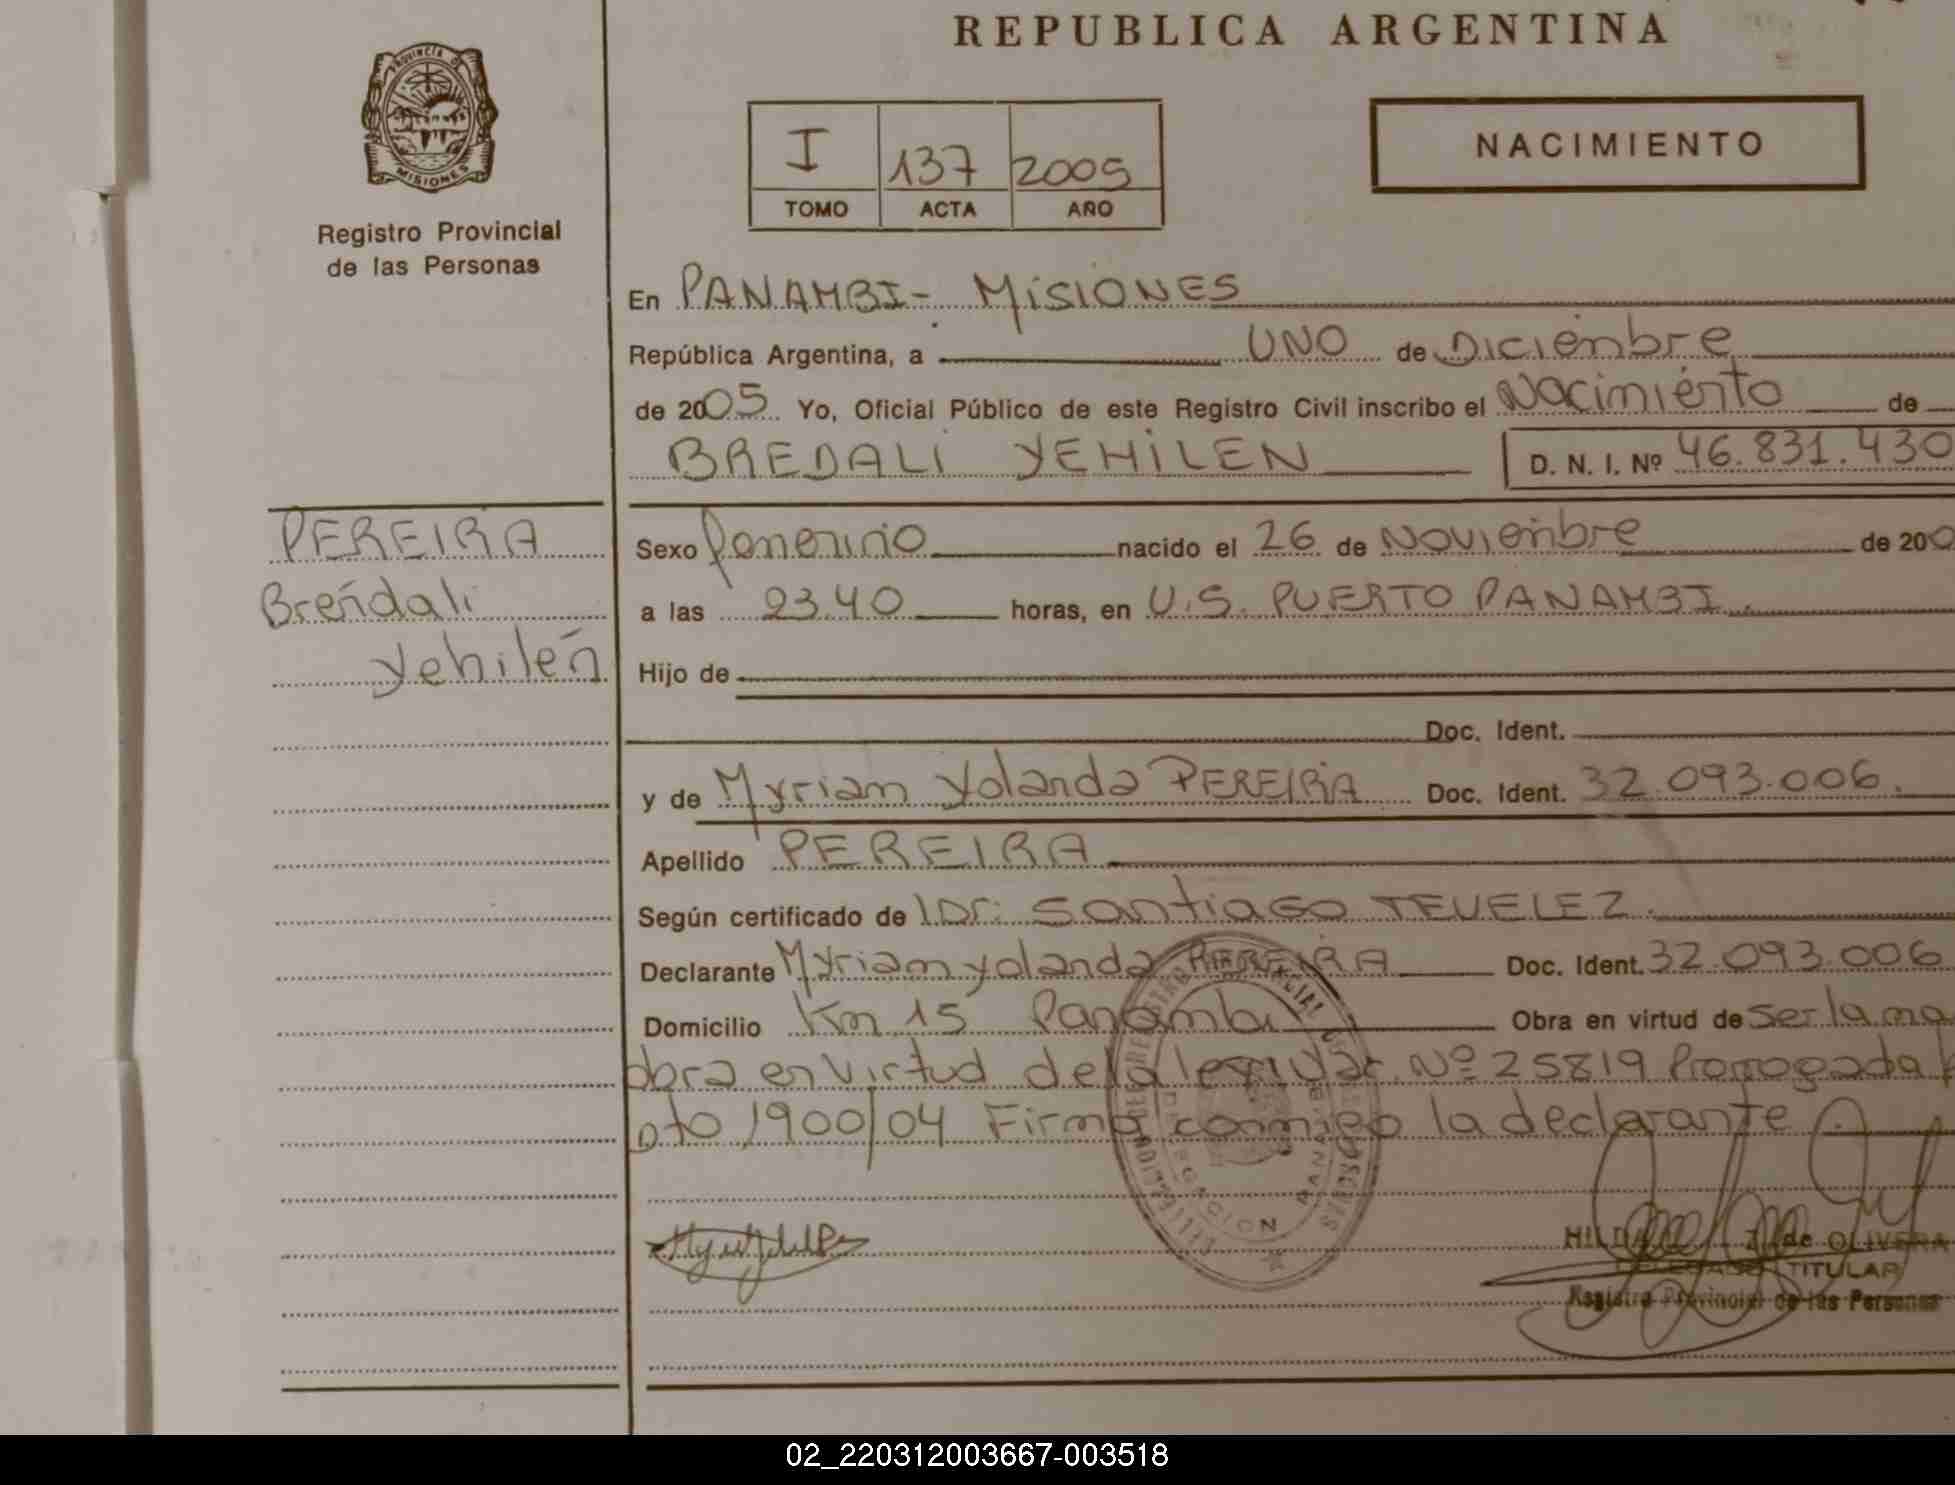 REPUBLICA ARGENTINA
PROVINCIA DE
MISIONES
Registro Provincial
de las Personas
I 137 2005
TOMO ACTA AÑO
NACIMIENTO
En PANAMBI - MiSIONES
República Argentina, a UNO de Diciembre
de 2005 Yo, Oficial Público de este Registro Civil inscribo el Nacimiento de
BREDALI YEHILEN D. N. I. Nº 46.831.430
PEREIRA
Brendali
Yehilén
Sexo femenino nacido el 26 de Noviembre de 200
a las 23.40 horas, en U.S. PUERTO PANAMBI.
Hijo de
Doc. Ident.
y de Myriam Yolanda PEREIRA Doc. Ident. 32.093.006.
Apellido PEREIRA
Según certificado de Dr. Santiago TEVELEZ.
Declarante Myriam yolanda PEREIRA Doc. Ident. 32.093.006
Domicilio Km 15 Panambi Obra en virtud de ser la ma
obra en virtud de la ley Nº 25819 Prorrogada
Dto 1900/04 Firma conmigo la declarante
HILDA Z. de OLIVERA
DELEGADO TITULAR
Registro Provincial de las Personas
DELEGACION PANAMBI
02_220312003667-003518